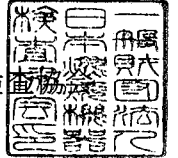 一般財団法人
日本燃焼機器
検査協会印